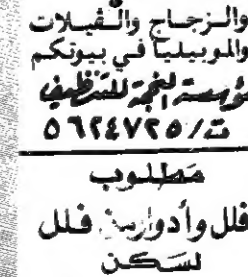 والزجاج والفيلات
والموبيليا في بيوتكم
مؤسسة النجمة للتنظيف
ت/٥٦٢٤٧٢٥
مطلوب
فلل وأدوار من فلل
لسكن